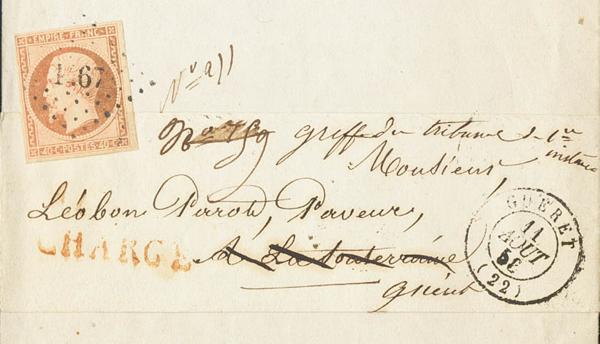 EMPIRE FRANC
1467
40·C·POSTES·40·C
No 759 greffe du tribunal de 1re
instance
Monsieur,
Léobon Parod, Paveur,
CHARGÉ
À La Souterraine
Guéret
GUÉRET
11
AOUT
56
(22)